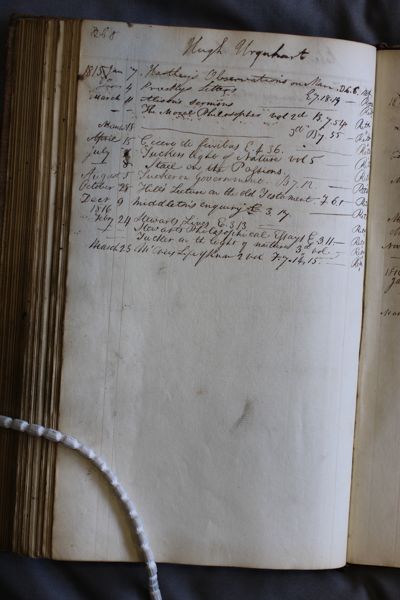 Hugh Urquhart
1815 Jan 7 Hartley's Observations on Man D.6.6
4 Priestley's Letters E.7.18.19
March 11 Alison's sermons
— The Moral Philosopher vol 2d B.7.54
March 18 3d B.7.55
April 15 Cicero de finibus C.4.36.
July Tucker's light of Nature vol 5
8 Stael on the Passions
August 5 Tucker on Government B.7.12
October 28 Hill's Lecture on the old Testament F.6.1
Decr 9 Middleton's enquiry E.3.17
1816
Feby 24 Stewart's Lives E.3.13
Stewarts Philosophical Essays E.3.11
Tucker on the light of nature 3d vol
March 23 Life of Knox 2 vol F.7.14.15